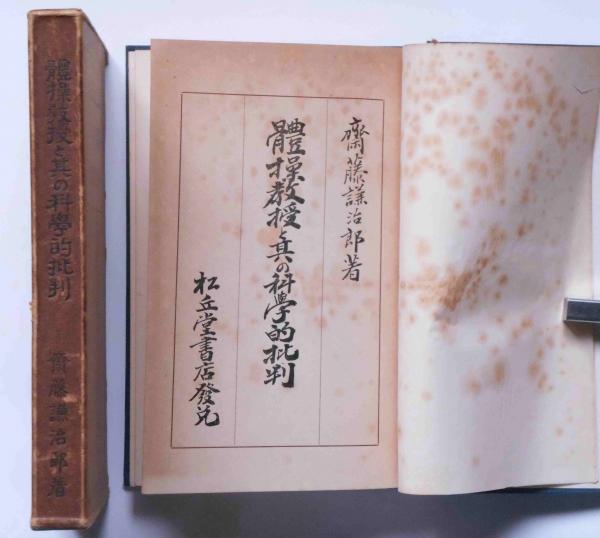 齋藤謙治郎著
體操教授と其の科學的批判
松丘堂書店發兌
體操教授と其の科學的批判
齋藤謙治郎著